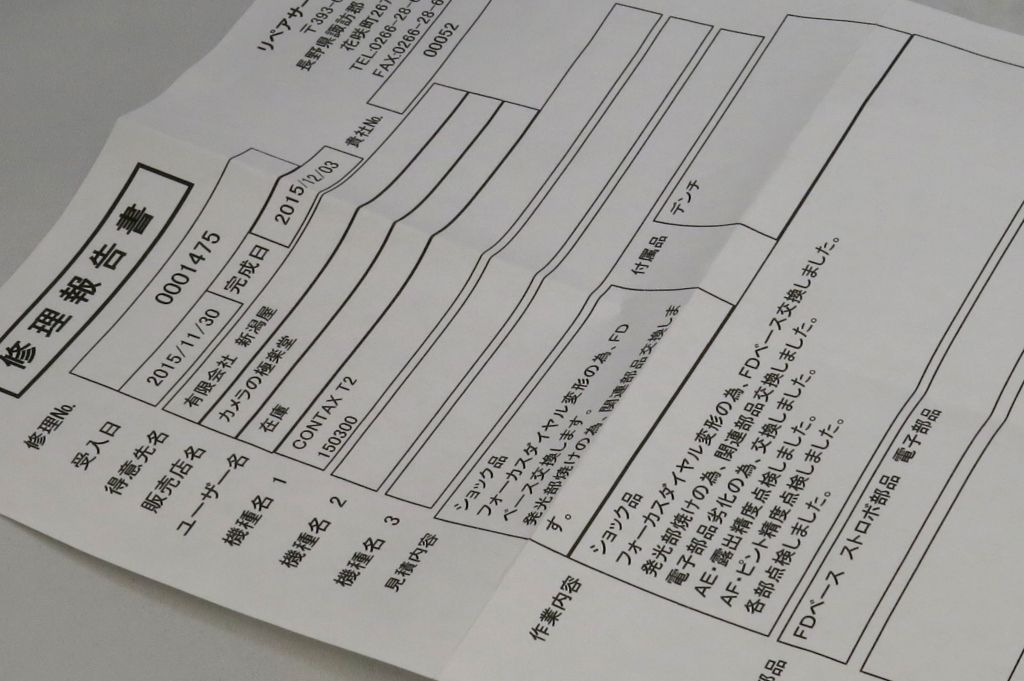 修理報告書
リペアサー
〒393-0
長野県諏訪郡
花咲町267
TEL.0266-28-6
FAX.0266-28-6
修理No. 00014475
貴社No. 00052
受入日 2015/11/30 完成日 2015/12/03
得意先名 有限会社 新潟屋
販売店名 カメラの極楽堂
ユーザー名 在庫
機種名 1 CONTAX T2
150300
機種名 2
機種名 3
見積内容 ショック品
フォーカスダイヤル変形の為、FD
ベース交換します。
発光部焼けの為、関連部品交換しま
す。
付属品 デンチ
作業内容 ショック品
フォーカスダイヤル変形の為、FDベース交換しました。
発光部焼けの為、関連部品交換しました。
電子部品劣化の為、交換しました。
AE・露出精度点検しました。
AF・ピント精度点検しました。
各部点検しました。
部品 FDベース ストロボ部品 電子部品